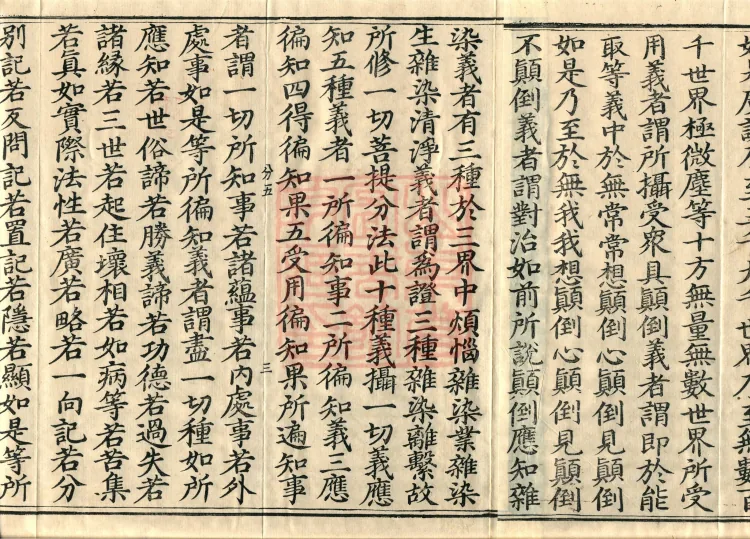 千世界極微塵等十方無量無數世界所受
用義者謂所攝受衆具顛倒義者謂即於能
取等義中於無常常想顛倒心顛倒見顛倒
如是乃至於無我我想顛倒心顛倒見顛倒
不顛倒義者謂對治如前所說顛倒應知雜
染義者有三種於三界中煩惱雜染業雜染
生雜染清淨義者謂爲證三種雜染離繫故
所修一切菩提分法此十種義攝一切義應
知五種義者一所徧知事二所徧知義三應
徧知四得徧知果五受用徧知果所遍知事
分五
三
者謂一切所知事若諸藴事若內處事若外
處事如是等所徧知義者謂盡一切種如所
應知若世俗諦若勝義諦若功德若過失若
諸緣若三世若起住壞相若如病等若苦集
若眞如實際法性若廣若略若一向記若分
別記若反問記若置記若隱若顯如是等所